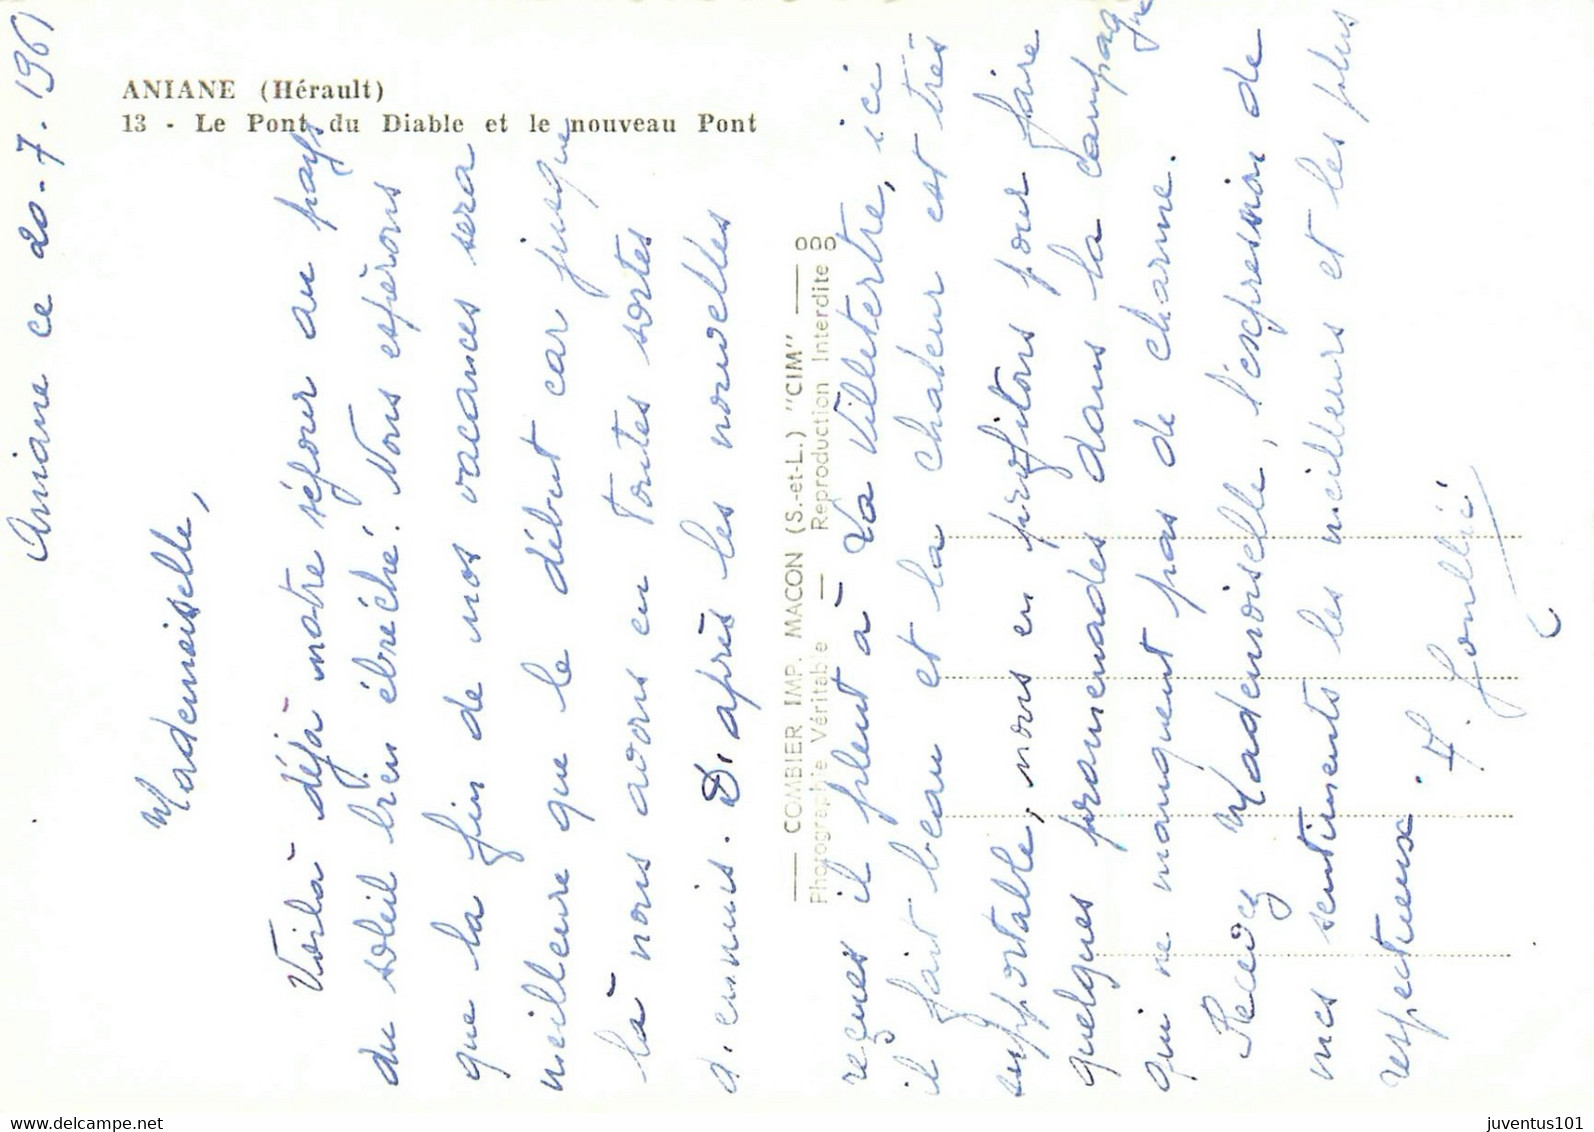 ANIANE (Hérault)
13 - Le Pont du Diable et le nouveau Pont
Aniane ce 20-7.1961
Mademoiselle,
Voilà déjà notre séjour au pays
du soleil bien ébréché. Nous espérons
que la fin de nos vacances sera
meilleure que le début car jusque
là nous avons eu toutes sortes
d'ennuis. D'après les nouvelles
reçues il pleut à La Villetertre, ici
il fait beau et la chaleur est très
supportable, nous en profitons pour faire
quelques promenades dans la campagne
qui ne manquent pas de charme.
Recevez Mademoiselle, l'expression de
mes sentiments les meilleurs et les plus
respectueux.
COMBIER IMP. MACON (S.-et-L.) "CIM"
Photographie Véritable — Reproduction Interdite
juventus101